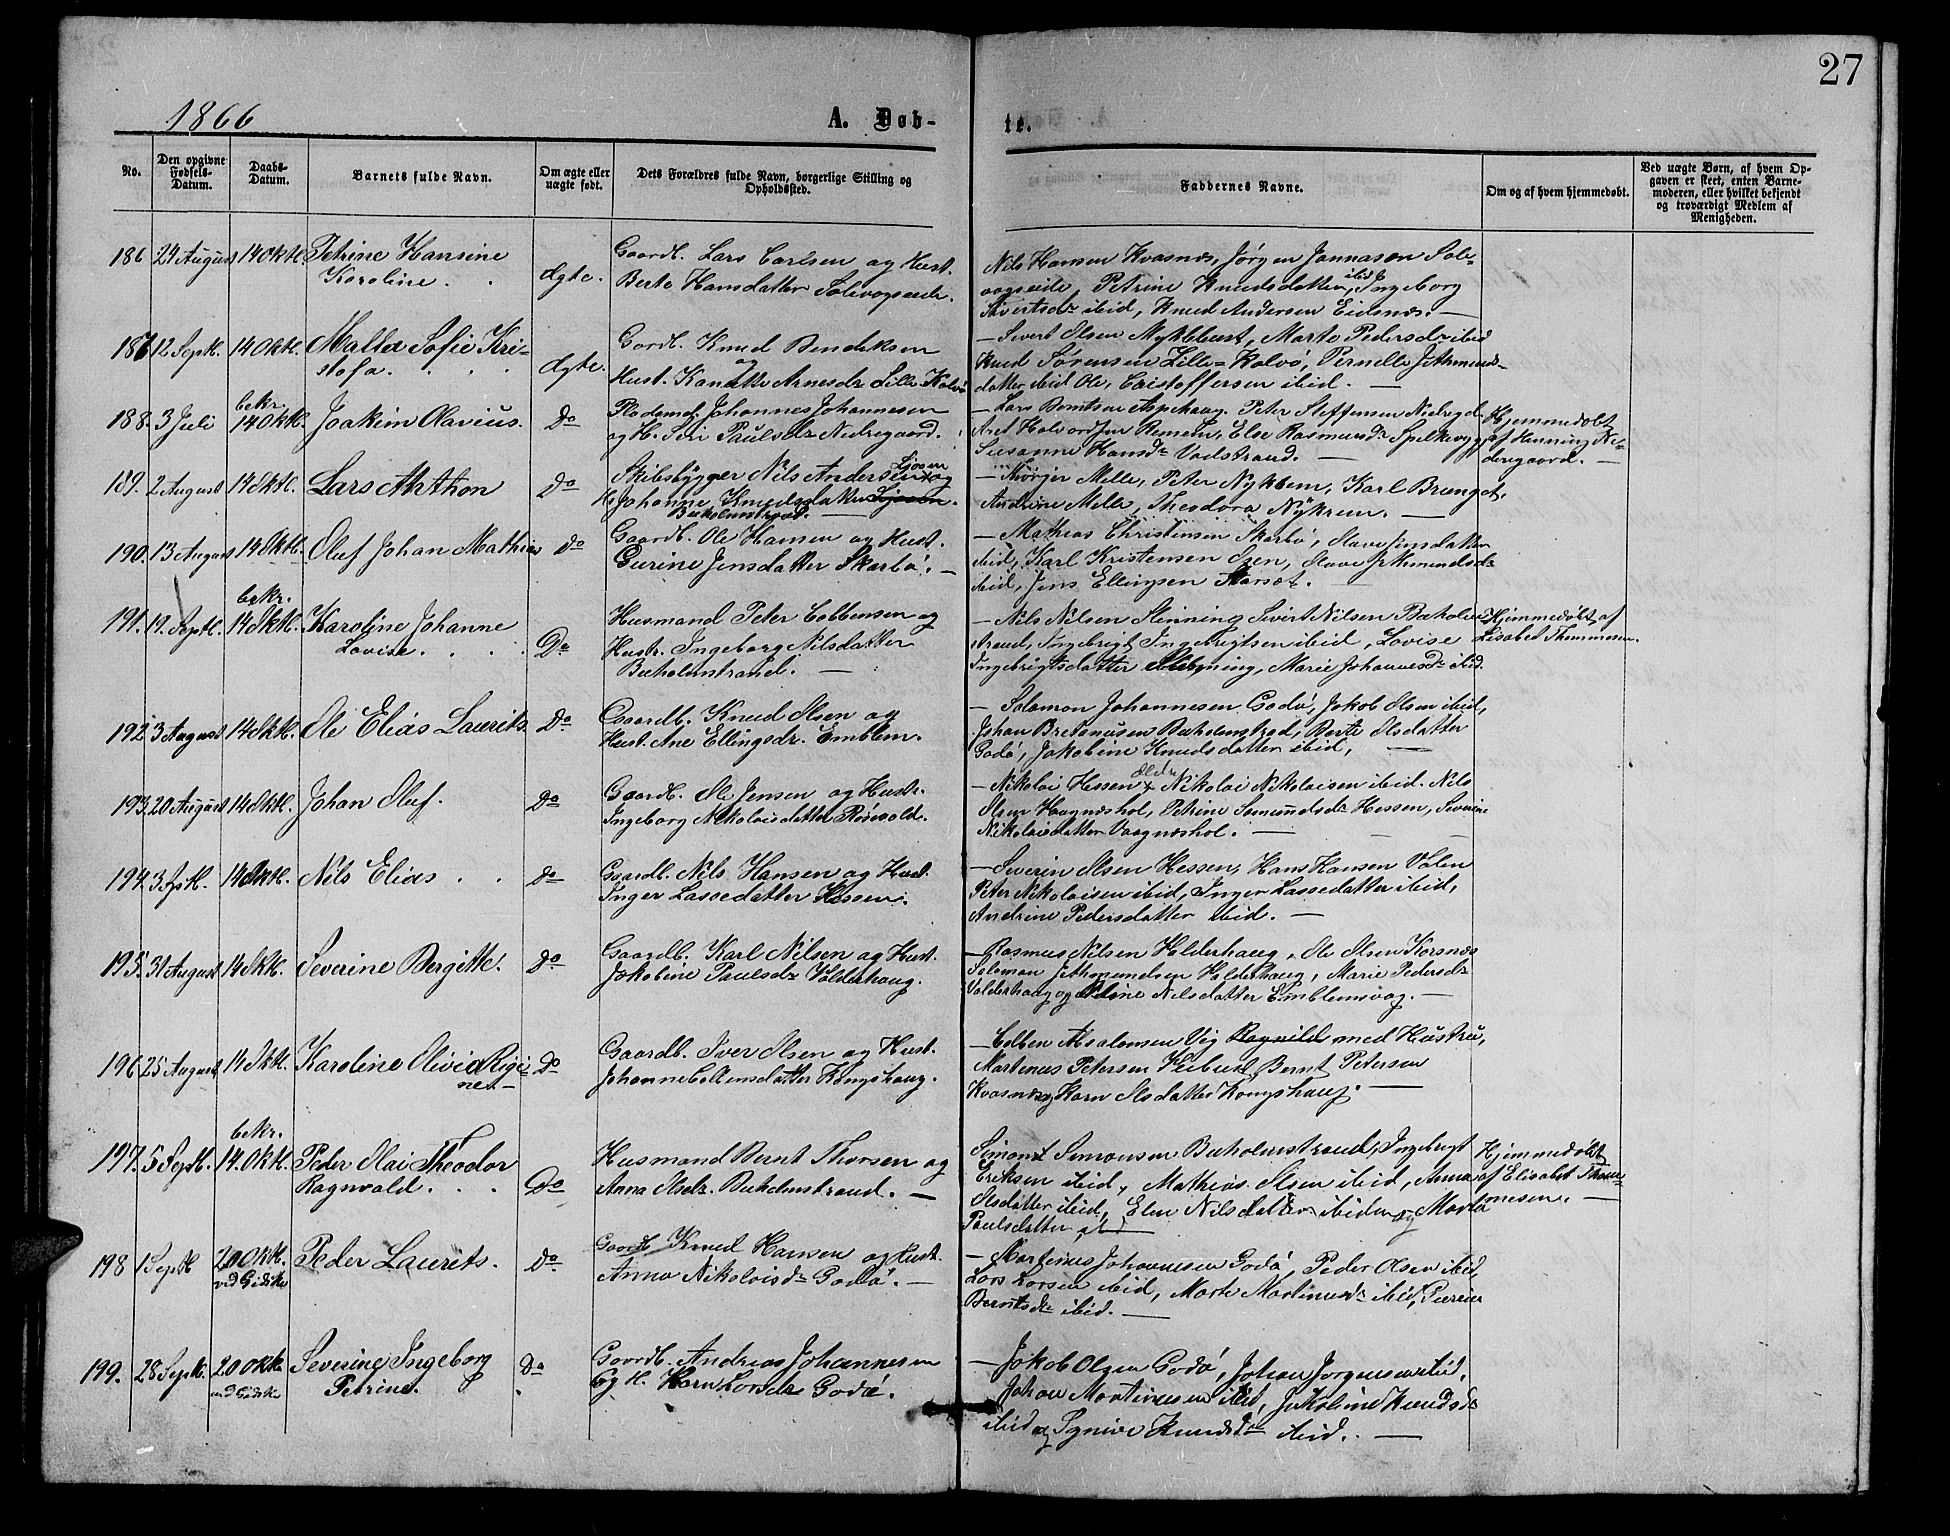 27
1866
A. Døb-
te.
No.
Den opgivne Fødsels-Datum.
Daabs-Datum.
Barnets fulde Navn.
Om ægte eller uægte født.
Dets Forældres fulde Navn, borgerlige Stilling og Opholdssted.
Faddernes Navne.
Om og af hvem hjemmedøbt.
Ved uægte Børn, af hvem Opgaven er skeet, enten Barnemoderen, eller hvilket bekjendt og troværdigt Medlem af Menigheden.
186 24 August 14 Oktl. Petrine Hansine
Karoline. ægte.
Gaardb. Lars Carlsen og Hust.
Berte Hansdatter Solevogseide.
Nils Hansen Kvasnæs, Jørgen Jonnasen Sole-
vogseide, Petrine Knudsdatter ibid, Ingeborg
Sivertsdr ibid, Knud Andersen Eidsnæs. —
187 12 Septl. 14 Oktl. Malla Sofie Kri-
stofa. ægte.
Gordb. Knud Bendiksen
og
Hust. Arnesdr Lille-Kalvø
— Sivert Olsen Myklebust, Marte Pedersdr ibid
Knud Sørensen Lille-Kalvø, Pernille
datter ibid Ole, Cristoffersen ibid. —
188. 3 Juli bekr. 14 Oktl. Joakim Olavius. Do
Pladsmd. Johannes Johannesen
og H. Siri Paulsdr Nedregaard.
— Lars Berntsen Aspehaug. Peter Steffensen Nedregd.
Halvordsen Remem, Else Rasmusdr Spelkevig,
Susanne Hansdr Vadstrand. —
Hjemmedøbt
af Henning Ne-
deregaard. —
189. 2 August 14 Oktl. Lars Anthon Do
Skibsbygger Nils Andersen Sjoen og
H. Johanne Knudsdatter
Buholmstrand. —
— Melle, Peter Nykrem, Karl Brenget,
Andrine Melle, Theodora Nykrem. —
190. 13 August 14 Oktl. Oluf Johan Mathias Do
Gaardb. Ole Hansen og Hust.
Gurine Jensdatter Skarbø. —
— Mathias Christensen Skarbø, Olave Jensdatter
ibid, Karl Kristensen Osen, Olave
ibid, Jens Ellingsen Aarset. —
191. 19. Septl. bekr. 14 Oktl. Karoline Johanne
Lovise. Do
Husmand Peter Colbensen og
Hustr. Ingeborg Nilsdatter
Buholmstrand. —
— Nils Nilsen Slinning Sivert Nilsen Buholm-
strand, Ingebrigt Ingebrigtsen ibid, Lovise
Ingebrigtsdatter Slinning, Marie Johannesdr ibid.
Hjemmedøbt af
Lisabet Thommesen.
192 3 August 14 Oktl. Ole Elias Laurits. Do
Gaardb. Knud Olsen og
Hust. Ane Ellingsdr. Emblem.
— Salamon Johannesen Godø, Jakob Olsen ibid,
Johan Buholmstrad, Berte Olsdatter
Godø, Jakobine Knudsdatter ibid, —
193. 20 August 14 Oktl. Johan Oluf. Do
Gaardb. Ole Jensen og Hustr.
Ingeborg Nikolaisdatter Røsevold.
— Nikolai Hessen ældre Nikolai Nikolaisen ibid. Nils
Olsen Haagnæshol, Petrine Hessen, Severine
Nikolaisdatter Vaagnæshol. —
194. 3 Septl. 14 Oktl. Nils Elias Do
Gaardb. Nils Hansen og Hust.
Inger Lassedatter Hessen.
— Severin Olsen Hessen, Hans Hansen Valen
Peter Nikolaisen ibid, Inger Lassedatter ibid,
Andrine Pedersdatter ibid. —
195. 31 August 14 Oktl. Severine Bergitte. Do
Gaardb. Karl Nilsen og Hust.
Jakobine Paulsdr Valderhaug.
— Rasmus Nilsen Valderhaug, Ole Olsen Korsnæs
Salomon Valderhaug, Marie Pedersdr
Valderhaug og Nilsdatter Emblemsvag. —
196 25 August 14 Oktl. Karoline Olivia Rigi-
Do
Gaardb. Iver Olsen og Hust.
Johanne Colbensdatter Kongshaug.
— Colben Absalonsen Vig Ragnild med Hustru,
Martinus Petersen Bernt Petersen
Kvasnæs og Karn Olsdatter Kongshaug. —
197. 5 Septl. bekr. 14. Oktl. Peder Olai Theodor
Ragnvald. Do
Husmand Bernt Thorsen og
Anna Olsdr. Buholmstrand. —
Simon Simonsen Buholmstrand, Ingebrigt
Eriksen ibid, Mathias Olsen ibid, Anna
Olsdatter ibid, Elen Nilsdatter ibidem og Marta
Paulsdatter ibid
Hjemmedøbt
af Elisabet Thom-
mesen. —
198 1 Septl 20 Oktl. vid Gidske Peder Laurits. Do
Gaardb. Knud Hansen og Hust.
Anna Nikolaisdr Godø. —
— Martinus Johannesen Godø, Peder Olsen ibid,
Lars Larsen ibid, Marte Martinusdr ibid,
Berntsdr ibid. —
199. 28 Septl. 20 Oktl. ved Gidske Severine Ingeborg
Petrine. Do
Gaardb. Andreas Johannesen
og H. Karn Larsdr Godø.
— Jakob Olsen Godø, Johan Jørgensen ibid,
Johan Martinusen ibid, Jakobine Knudsdr
ibid og Synive Knudsdr ibid. —